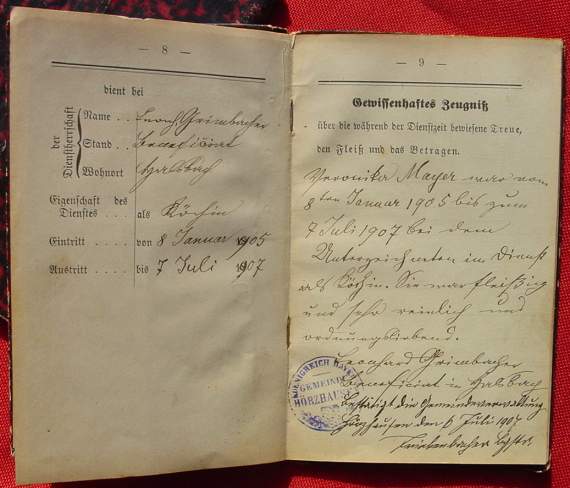 — 8 —
dient bei
der Dienstherrschaft
Name . . Leonh. Grimbacher
Stand . . Beneficiat
Wohnort Halsbach
Eigenschaft des
Dienstes . . . als Köchin
Eintritt . . . . von 8 Januar 1905
Austritt . . . . bis 7 Juli 1907
— 9 —
Gewissenhaftes Zeugniß
über die während der Dienstzeit bewiesene Treue,
den Fleiß und das Betragen.
Veronika Mayer war vom
8ten Januar 1905 bis zum
7 Juli 1907 bei dem
Unterzeichneten im Dienst
als Köchin. Sie war fleißig
und sehr reinlich und
ordnungsliebend.
Leonhard Grimbacher
Beneficiat in Halsbach
Bestätigt die Gemeindeverwaltung
Hörzhausen den 6 Juli 1907
KOENIGREICH BAYERN
GEMEINDE
HÖRZHAUSEN